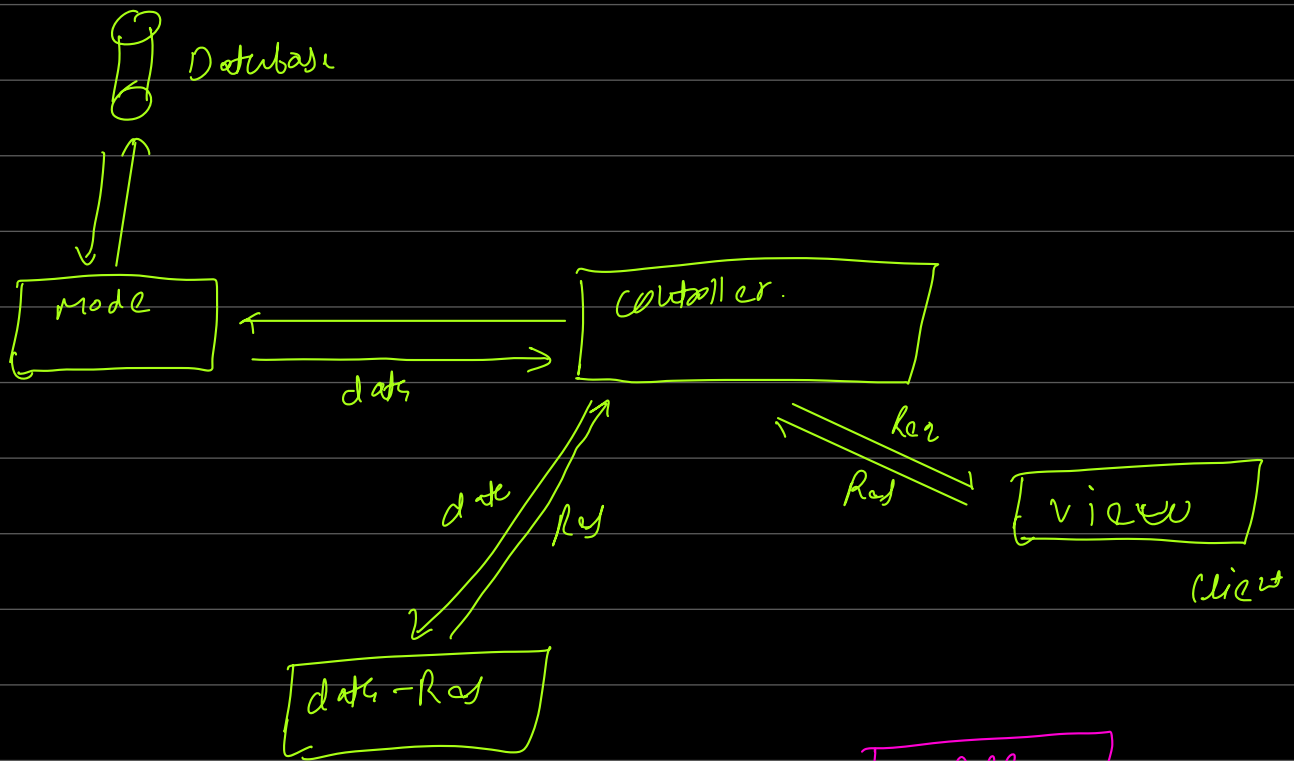 Database
Mode
Controller.
data
Req
Res
data
Res
View
Client
data-Res